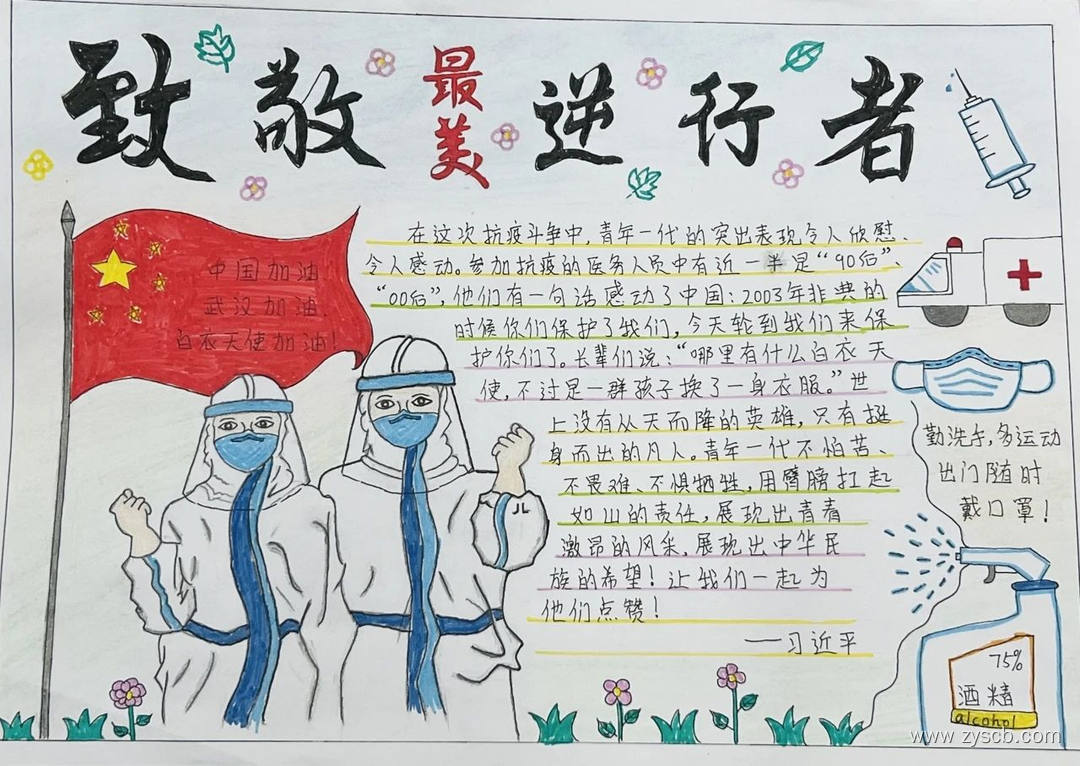 致敬最美逆行者
中国加油
武汉加油
白衣天使加油!
在这次抗疫斗争中,青年一代的突出表现令人欣慰、
令人感动。参加抗疫的医务人员中有近一半是“90后”、
“00后”,他们有一句话感动了中国:2003年非典的
时候你们保护了我们,今天轮到我们来保
护你们了。长辈们说:“哪里有什么白衣天
使,不过是一群孩子换了一身衣服。”世
上没有从天而降的英雄,只有挺
身而出的凡人。青年一代不怕苦、
不畏难、不惧牺牲,用臂膀扛起
如山的责任,展现出青春
激昂的风采,展现出中华民
族的希望!让我们一起为
他们点赞!
——习近平
勤洗手,多运动
出门随时
戴口罩!
75%
酒精
alcohol
JL
www.zyscb.com